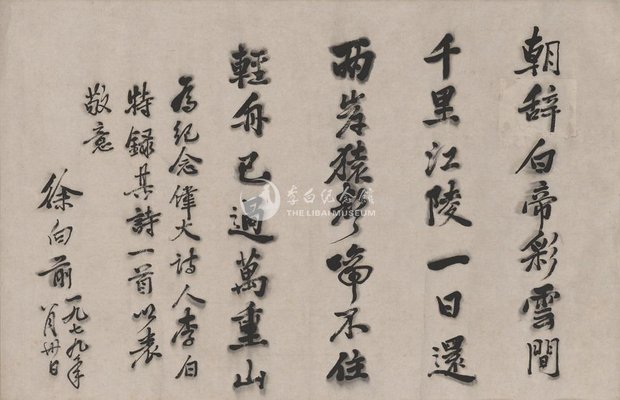 朝辞白帝彩雲間
千里江陵一日還
两岸猿聲啼不住
輕舟已過萬重山
為紀念偉大詩人李白
特録其詩一首以表
敬意
徐向前
一九七九年
八月廿日
李白纪念馆
THE LIBAI MUSEUM